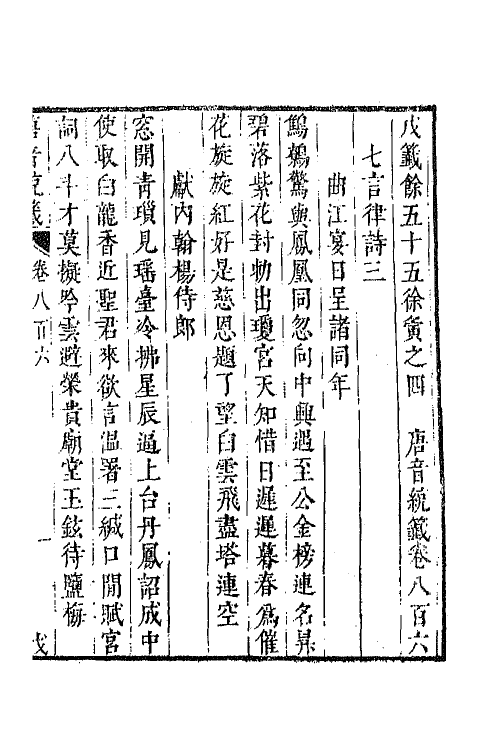 戊籤餘五十五徐夤之四　唐音統籤卷八百六
七言律詩三
曲江宴日呈諸同年
鷦鷯驚與鳳凰同忽向中興遇至公金榜連名昇
碧落紫花封勑出瓊宮天知惜日遲遲暮春爲催
花旋旋紅好是慈恩題了望白雲飛盡塔連空
獻內翰楊侍郎
窓開青瑣見瑶臺冷拂星辰逼上台丹鳳詔成中
使取白龍香近聖君來欲言溫署三緘口閒賦宮
詞八斗才莫擬吟雲避榮貴廟堂玉鉉待鹽梅
唐音統籤
卷八百六
一
戊